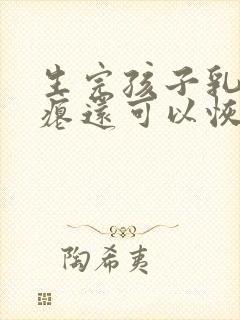 生完孩子乳
瘪还可以恢
陶希夷